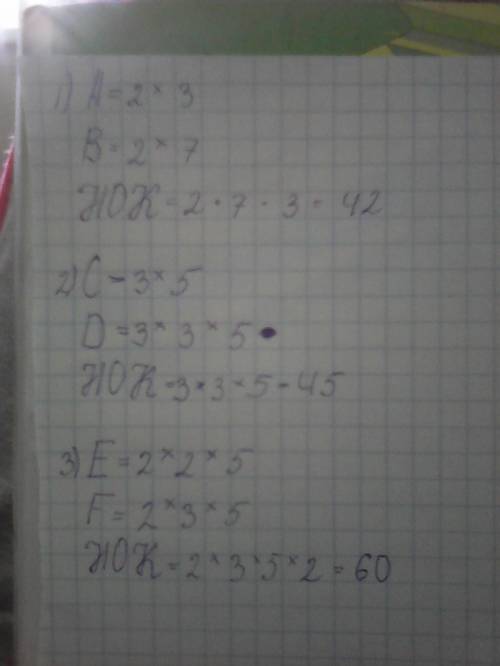 1) A = 2 × 3
B = 2 × 7
НОК = 2 · 7 · 3 = 42
2) C = 3 × 5
D = 3 × 3 × 5
НОК = 3 × 3 × 5 = 45
3) E = 2 × 2 × 5
F = 2 × 3 × 5
НОК = 2 × 3 × 5 × 2 = 60